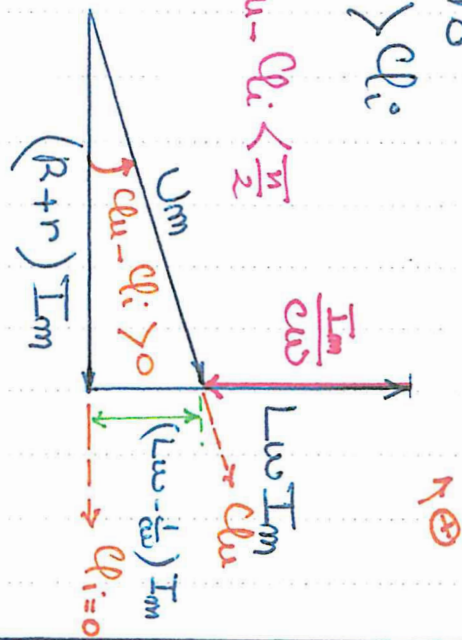 > φi
φu - φi < π/2
Um
φu - φi > 0
(R+r) Im
Im/Cω
Lω Im
φu
(Lω - 1/Cω) Im
φi = 0
⊕